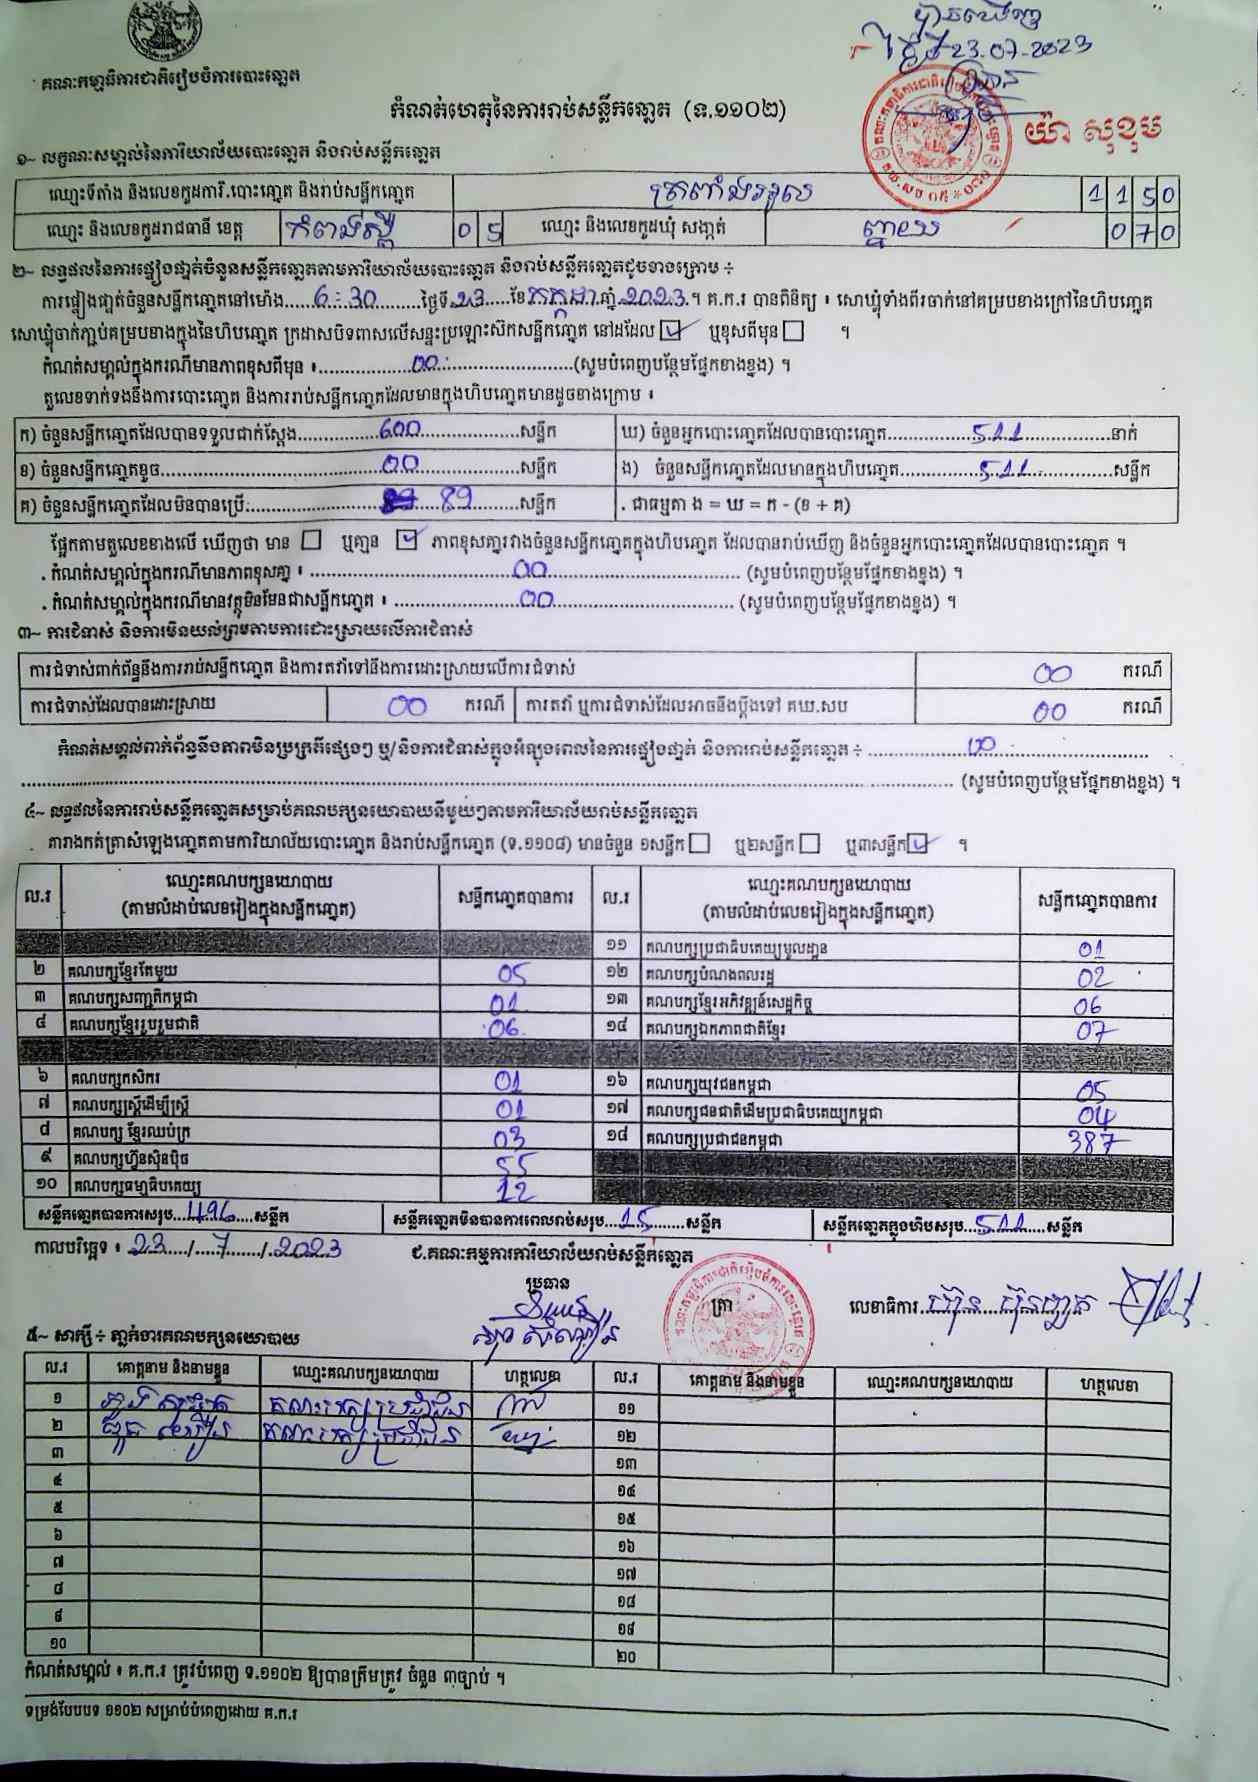 បានឃើញ
ថ្ងៃទី 23.07.2023
ប្រធាន
គណៈកម្មាធិការជាតិរៀបចំការបោះឆ្នោត
កំណត់ហេតុនៃការរាប់សន្លឹកឆ្នោត (ទ.១១០២)
យ៉ា សុខុម
១~ លក្ខណៈសម្គាល់នៃការិយាល័យបោះឆ្នោត និងរាប់សន្លឹកឆ្នោត
ឈ្មោះទីតាំង និងលេខកូដការិ.បោះឆ្នោត និងរាប់សន្លឹកឆ្នោត 1150
ឈ្មោះ និងលេខកូដរាជធានី ខេត្ត កំពង់ស្ពឺ 05 ឈ្មោះ និងលេខកូដឃុំ សង្កាត់ 070
២~ លទ្ធផលនៃការផ្ទៀងផ្ទាត់ចំនួនសន្លឹកឆ្នោតតាមការិយាល័យបោះឆ្នោត និងរាប់សន្លឹកឆ្នោតដូចខាងក្រោម ÷
ការផ្ទៀងផ្ទាត់ចំនួនសន្លឹកឆ្នោតនៅម៉ោង......6:30......ថ្ងៃទី.23....ខែ.កក្កដា.ឆ្នាំ.2023.។ គ.ក.រ បានពិនិត្យ ៖ សោឃ្មុំទាំងពីរចាក់នៅគម្របខាងក្រៅនៃហិបឆ្នោត
សោឃ្មុំចាក់ភ្ជាប់គម្របខាងក្នុងនៃហិបឆ្នោត ក្រដាសបិទពាសលើសន្ទះប្រឡោះស៊កសន្លឹកឆ្នោត នៅដដែល ☑ ឬខុសពីមុន ☐ ។
កំណត់សម្គាល់ក្នុងករណីមានភាពខុសពីមុន ៖......00......(សូមបំពេញបន្ថែមផ្នែកខាងខ្នង) ។
តួលេខទាក់ទងនឹងការបោះឆ្នោត និងការរាប់សន្លឹកឆ្នោតដែលមានក្នុងហិបឆ្នោតមានដូចខាងក្រោម ៖
ក) ចំនួនសន្លឹកឆ្នោតដែលបានទទួលជាក់ស្តែង......600......សន្លឹក ឃ) ចំនួនអ្នកបោះឆ្នោតដែលបានបោះឆ្នោត......511......នាក់
ខ) ចំនួនសន្លឹកឆ្នោតខូច......00......សន្លឹក ង) ចំនួនសន្លឹកឆ្នោតដែលមានក្នុងហិបឆ្នោត......511......សន្លឹក
គ) ចំនួនសន្លឹកឆ្នោតដែលមិនបានប្រើ......89......សន្លឹក . ជាធម្មតា ង = ឃ = ក - (ខ + គ)
ផ្អែកតាមតួលេខខាងលើ ឃើញថា មាន ☐ ឬគ្មាន ☑ ភាពខុសគ្នារវាងចំនួនសន្លឹកឆ្នោតក្នុងហិបឆ្នោត ដែលបានរាប់ឃើញ និងចំនួនអ្នកបោះឆ្នោតដែលបានបោះឆ្នោត ។
. កំណត់សម្គាល់ក្នុងករណីមានភាពខុសគ្នា ៖ ......00...... (សូមបំពេញបន្ថែមផ្នែកខាងខ្នង) ។
. កំណត់សម្គាល់ក្នុងករណីមានវត្ថុមិនមែនជាសន្លឹកឆ្នោត ៖ ......00...... (សូមបំពេញបន្ថែមផ្នែកខាងខ្នង) ។
៣~ ការជំទាស់ និងការមិនយល់ព្រមតាមការដោះស្រាយលើការជំទាស់
ការជំទាស់ពាក់ព័ន្ធនឹងការរាប់សន្លឹកឆ្នោត និងការតវ៉ាទៅនឹងការដោះស្រាយលើការជំទាស់ 00 ករណី
ការជំទាស់ដែលបានដោះស្រាយ 00 ករណី ការតវ៉ា ឬការជំទាស់ដែលអាចនឹងប្តឹងទៅ គឃ.សប 00 ករណី
កំណត់សម្គាល់ពាក់ព័ន្ធនឹងភាពមិនប្រក្រតីផ្សេងៗ ឬ/និងការជំទាស់ក្នុងអំឡុងពេលនៃការផ្ទៀងផ្ទាត់ និងការរាប់សន្លឹកឆ្នោត ÷ ......00......
...... (សូមបំពេញបន្ថែមផ្នែកខាងខ្នង) ។
៤~ លទ្ធផលនៃការរាប់សន្លឹកឆ្នោតសម្រាប់គណបក្សនយោបាយនីមួយៗតាមការិយាល័យរាប់សន្លឹកឆ្នោត
តារាងកត់ត្រាសំឡេងឆ្នោតតាមការិយាល័យបោះឆ្នោត និងរាប់សន្លឹកឆ្នោត (ទ.១១០៨) មានចំនួន ១សន្លឹក ☐ ឬ២សន្លឹក ☐ ឬ៣សន្លឹក ☑ ។
ល.រ ឈ្មោះគណបក្សនយោបាយ (តាមលំដាប់លេខរៀងក្នុងសន្លឹកឆ្នោត) សន្លឹកឆ្នោតបានការ ល.រ ឈ្មោះគណបក្សនយោបាយ (តាមលំដាប់លេខរៀងក្នុងសន្លឹកឆ្នោត) សន្លឹកឆ្នោតបានការ
១១ គណបក្សប្រជាធិបតេយ្យមូលដ្ឋាន 01
២ គណបក្សខ្មែរតែមួយ 05 ១២ គណបក្សបំណងពលរដ្ឋ 02
៣ គណបក្សសញ្ជាតិកម្ពុជា 01 ១៣ គណបក្សខ្មែរអភិវឌ្ឍន៍សេដ្ឋកិច្ច 06
៤ គណបក្សខ្មែររួបរួមជាតិ 06 ១៤ គណបក្សឯកភាពជាតិខ្មែរ 07
៦ គណបក្សកសិករ 01 ១៦ គណបក្សយុវជនកម្ពុជា 05
៧ គណបក្សស្ត្រីដើម្បីស្ត្រី 01 ១៧ គណបក្សជនជាតិដើមប្រជាធិបតេយ្យកម្ពុជា 04
៨ គណបក្ស ខ្មែរឈប់ក្រ 03 ១៨ គណបក្សប្រជាជនកម្ពុជា 387
៩ គណបក្សហ៊្វុនស៊ិនប៉ិច 55
១០ គណបក្សធម្មាធិបតេយ្យ 12
សន្លឹកឆ្នោតបានការសរុប...496....សន្លឹក សន្លឹកឆ្នោតមិនបានការពេលរាប់សរុប...15......សន្លឹក សន្លឹកឆ្នោតក្នុងហិបសរុប...511....សន្លឹក
កាលបរិច្ឆេទ ៖ 23..../....7....../.2023 ជ.គណៈកម្មការការិយាល័យរាប់សន្លឹកឆ្នោត
ប្រធាន ត្រា លេខាធិការ
៥~ សាក្សី ÷ ភ្នាក់ងារគណបក្សនយោបាយ
ល.រ គោត្តនាម និងនាមខ្លួន ឈ្មោះគណបក្សនយោបាយ ហត្ថលេខា ល.រ គោត្តនាម និងនាមខ្លួន ឈ្មោះគណបក្សនយោបាយ ហត្ថលេខា
១ គណបក្សប្រជាជន ១១
២ គណបក្សប្រជាជន ១២
៣ ១៣
៤ ១៤
៥ ១៥
៦ ១៦
៧ ១៧
៨ ១៨
៩ ១៩
១០ ២០
កំណត់សម្គាល់ ៖ គ.ក.រ ត្រូវបំពេញ ទ.១១០២ ឱ្យបានត្រឹមត្រូវ ចំនួន ៣ច្បាប់ ។
ទម្រង់បែបបទ ១១០២ សម្រាប់បំពេញដោយ គ.ក.រ